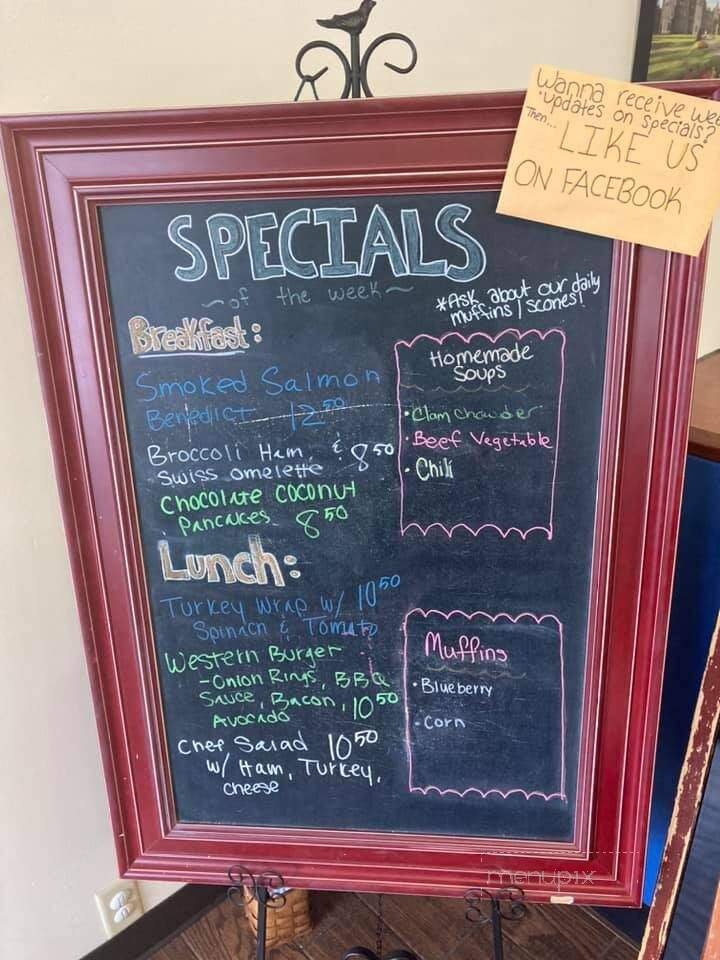 Wanna receive wee
updates on specials?
Then... LIKE US
ON FACEBOOK
SPECIALS
~of the week~
*Ask about our daily
muffins / scones!
Breakfast:
Smoked Salmon
Benedict 12.50
Broccoli Ham, &
Swiss omelette 8.50
Chocolate coconut
Pancakes 8.50
Homemade
Soups
• Clam chowder
• Beef Vegetable
• Chili
Lunch:
Turkey Wrap w/ 10.50
Spinach & Tomato
Western Burger
- Onion Rings, BBQ
Sauce, Bacon,
Avocado 10.50
Chef Salad 10.50
w/ Ham, Turkey,
cheese
Muffins
• Blueberry
• Corn
menupix